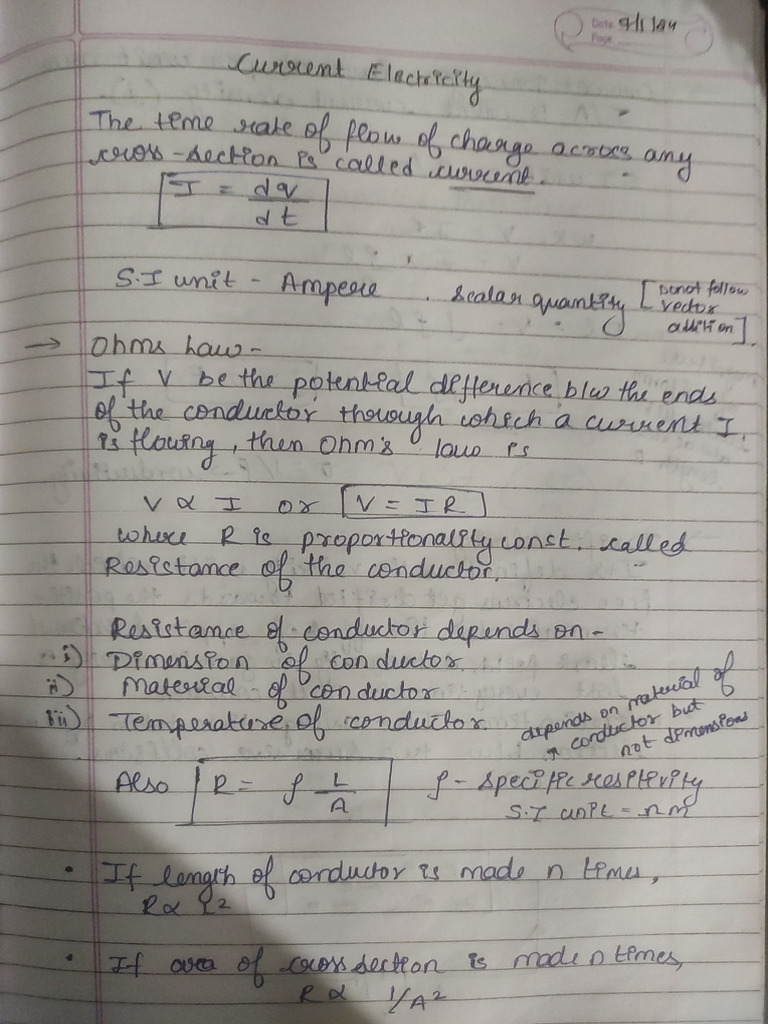 Date 9/1/24
Page
Current Electricity
The time rate of flow of charge across any
cross-section is called current.
I = dq/dt
S.I unit - Ampere . Scalar quantity [Donot follow
vector
addition].
→ Ohms Law -
If V be the potential difference b/w the ends
of the conductor through which a current I
is flowing, then Ohm's law is
V ∝ I or V = IR
where R is proportionality const. called
Resistance of the conductor.
Resistance of conductor depends on -
i) Dimension of conductor
ii) Material of conductor
iii) Temperature of conductor
depends on material of
conductor but
not dimensions
Also R = ρ L/A ρ - specific resistivity
S.I unit = Ωm
• If length of conductor is made n times,
R ∝ L²
• If area of cross section is made n times,
R ∝ 1/A²